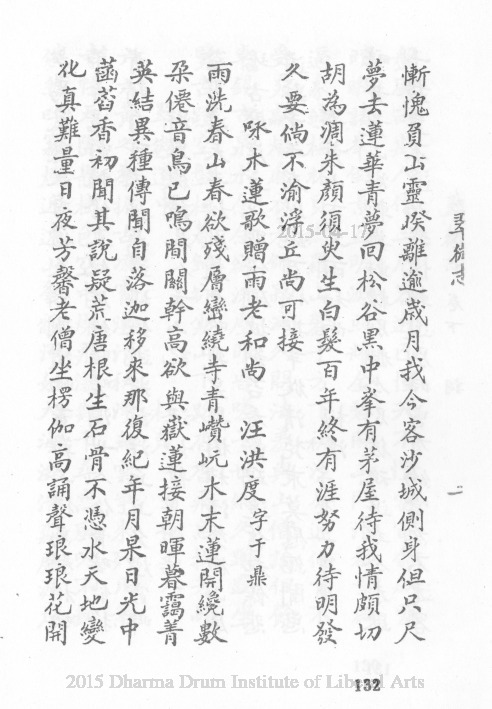 慚愧負山靈暌離逾歲月我今客沙城側身但只尺
夢去蓮華青夢回松谷黑中峯有茅屋待我情頗切
胡為凋朱顏須臾生白髮百年終有涯努力待明發
久要倘不渝浮丘尚可接
咏木蓮歌贈雨老和尚 汪洪度 字于鼎
雨洗春山春欲殘層巒繞寺青巑岏木末蓮開纔數
朵僊音鳥已鳴間關幹高欲與嶽蓮接朝暉暮靄菁
英結異種傳聞自落迦移來那復紀年月杲日光中
菡萏香初聞其說疑荒唐根生石骨不憑水天地變
化真難量日夜芳馨老僧坐楞伽高誦聲琅琅花開
132
2015-04-17
2015 Dharma Drum Institute of Liberal Arts